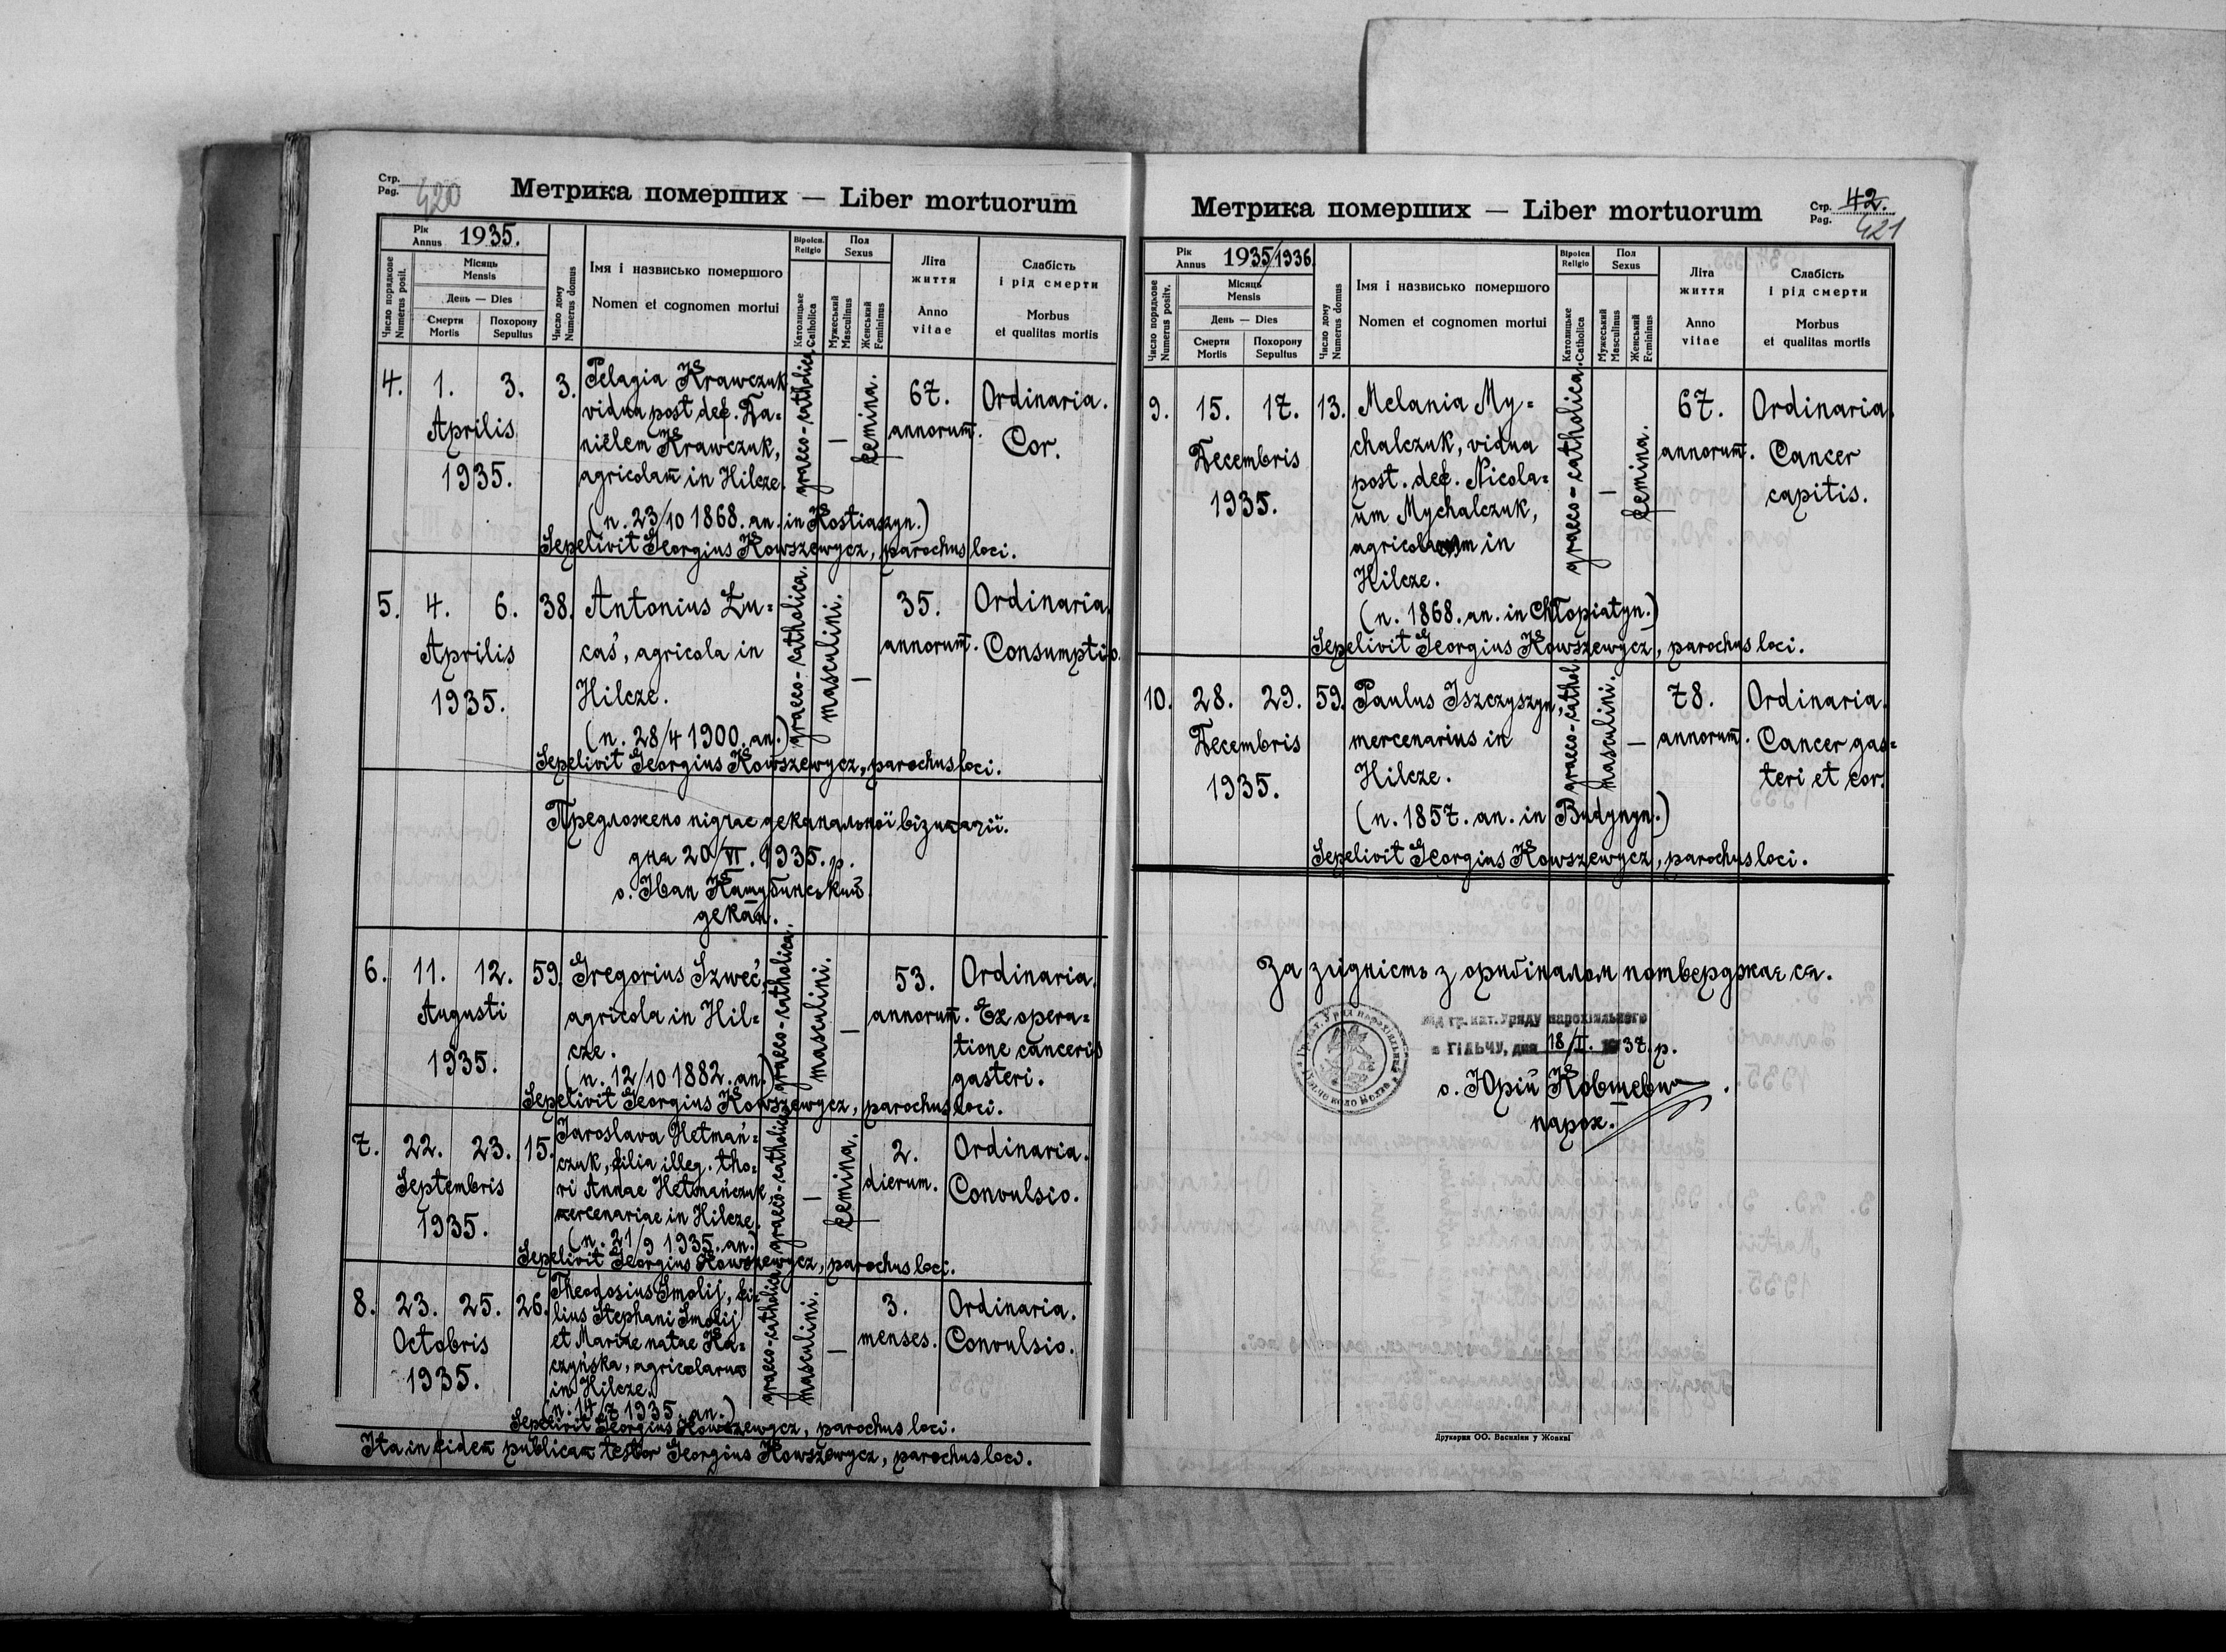 Стр.
Pag. 420
Метрика померших — Liber mortuorum
Рік
Annus 1935.
Число порядкове
Numerus posit.
Місяць
Mensis
День — Dies
Смерти
Mortis
Похорону
Sepultus
Число дому
Numerus domus
Імя і назвисько помершого
Nomen et cognomen mortui
Віроісп.
Religio
Католицьке
Catholica
Пол
Sexus
Мужеський
Masculinus
Женський
Femininus
Літа
життя
Anno
vitae
Слабість
і рід смерти
Morbus
et qualitas mortis
4. 1. 3. Aprilis 1935.
3.
Pelagia Krawczuk
vidua post def. Da=
niëlem Krawczuk,
agricolam̄ in Hilcze.
(n. 23/10 1868. an. in Kostiaszyn.)
graeco-catholica.
—
femina.
67.
annorum̄.
Ordinaria.
Cor.
Sepelivit Georgius Kowszewycz, parochus loci.
5. 4. 6. Aprilis 1935.
38.
Antonius Łu=
caś, agricola in
Hilcze.
(n. 28/4 1900. an.)
graeco-catholica.
masculini.
—
35.
annorum̄.
Ordinaria.
Consumptio.
Sepelivit Georgius Kowszewycz, parochus loci.
Предложено підчас деканальної візитації.
дна 20/VI. 1935. р.
о. Іван
декан.
6. 11. 12. Augusti 1935.
59.
Gregorius Szweć,
agricola in Hil=
cze.
(n. 12/10 1882. an.)
graeco-catholica.
masculini.
—
53.
annorum̄.
Ordinaria.
Ex opera=
tione canceris
gasteri.
Sepelivit Georgius Kowszewycz, parochus loci.
7. 22. 23. Septembris 1935.
15.
Jaroslava Hetmań=
czuk, filia illeg. tho=
ri Annae Hetmańczuk,
mercenariae in Hilcze.
(n. 21/9 1935. an.)
graeco-catholica
—
femina.
2.
dierum.
Ordinaria.
Convulsio.
Sepelivit Georgius Kowszewycz, parochus loci.
8. 23. 25. Octobris 1935.
26.
Theodosius Smolij, fi=
lius Stephani Smolij
et Mariae natae Ka=
czyńska, agricolarum
in Hilcze.
(n. 14/7 1935. an.)
graeco-catholica
masculini.
—
3.
menses.
Ordinaria.
Convulsio.
Sepelivit Georgius Kowszewycz, parochus loci.
Ita in fidem publicam testor Georgius Kowszewycz, parochus loci.
Метрика померших — Liber mortuorum
Стр.
Pag. 42.
421
Рік
Annus 1935/1936.
Число порядкове
Numerus positv.
Місяць
Mensis
День — Dies
Смерти
Mortis
Похорону
Sepultus
Число дому
Numerus domus
Імя і назвисько помершого
Nomen et cognomen mortui
Віроісп
Religio
Католицьке
Catholica
Пол
Sexus
Мужеський
Masculinus
Женський
Femininus
Літа
життя
Anno
vitae
Слабість
і рід смерти
Morbus
et qualitas mortis
9. 15. 17. Decembris 1935.
13.
Melania My=
chalczuk, vidua
post. def. Nicola=
um Mychalczuk,
in
Hilcze.
(n. 1868. an. in Chłopiatyn.)
graeco-catholica.
—
femina.
67.
annorum̄.
Ordinaria.
Cancer
capitis.
Sepelivit Georgius Kowszewycz, parochus loci.
10. 28. 29. Decembris 1935.
59.
Paulus Iszczyszyn,
mercenarius in
Hilcze.
(n. 1857. an. in Budynyn.)
graeco-cathol.
masculini.
—
78.
annorum̄.
Ordinaria.
Cancer gas=
teri et cor.
Sepelivit Georgius Kowszewycz, parochus loci.
За згідність з оригіналом потверджає ся.
Від гр. кат. Уряду парохіяльного
в Гільчу, дня 18/II. 1937. р.
о. Юрій Ковшевич.
парох.
Друкарня ОО. Василіян у Жовкві